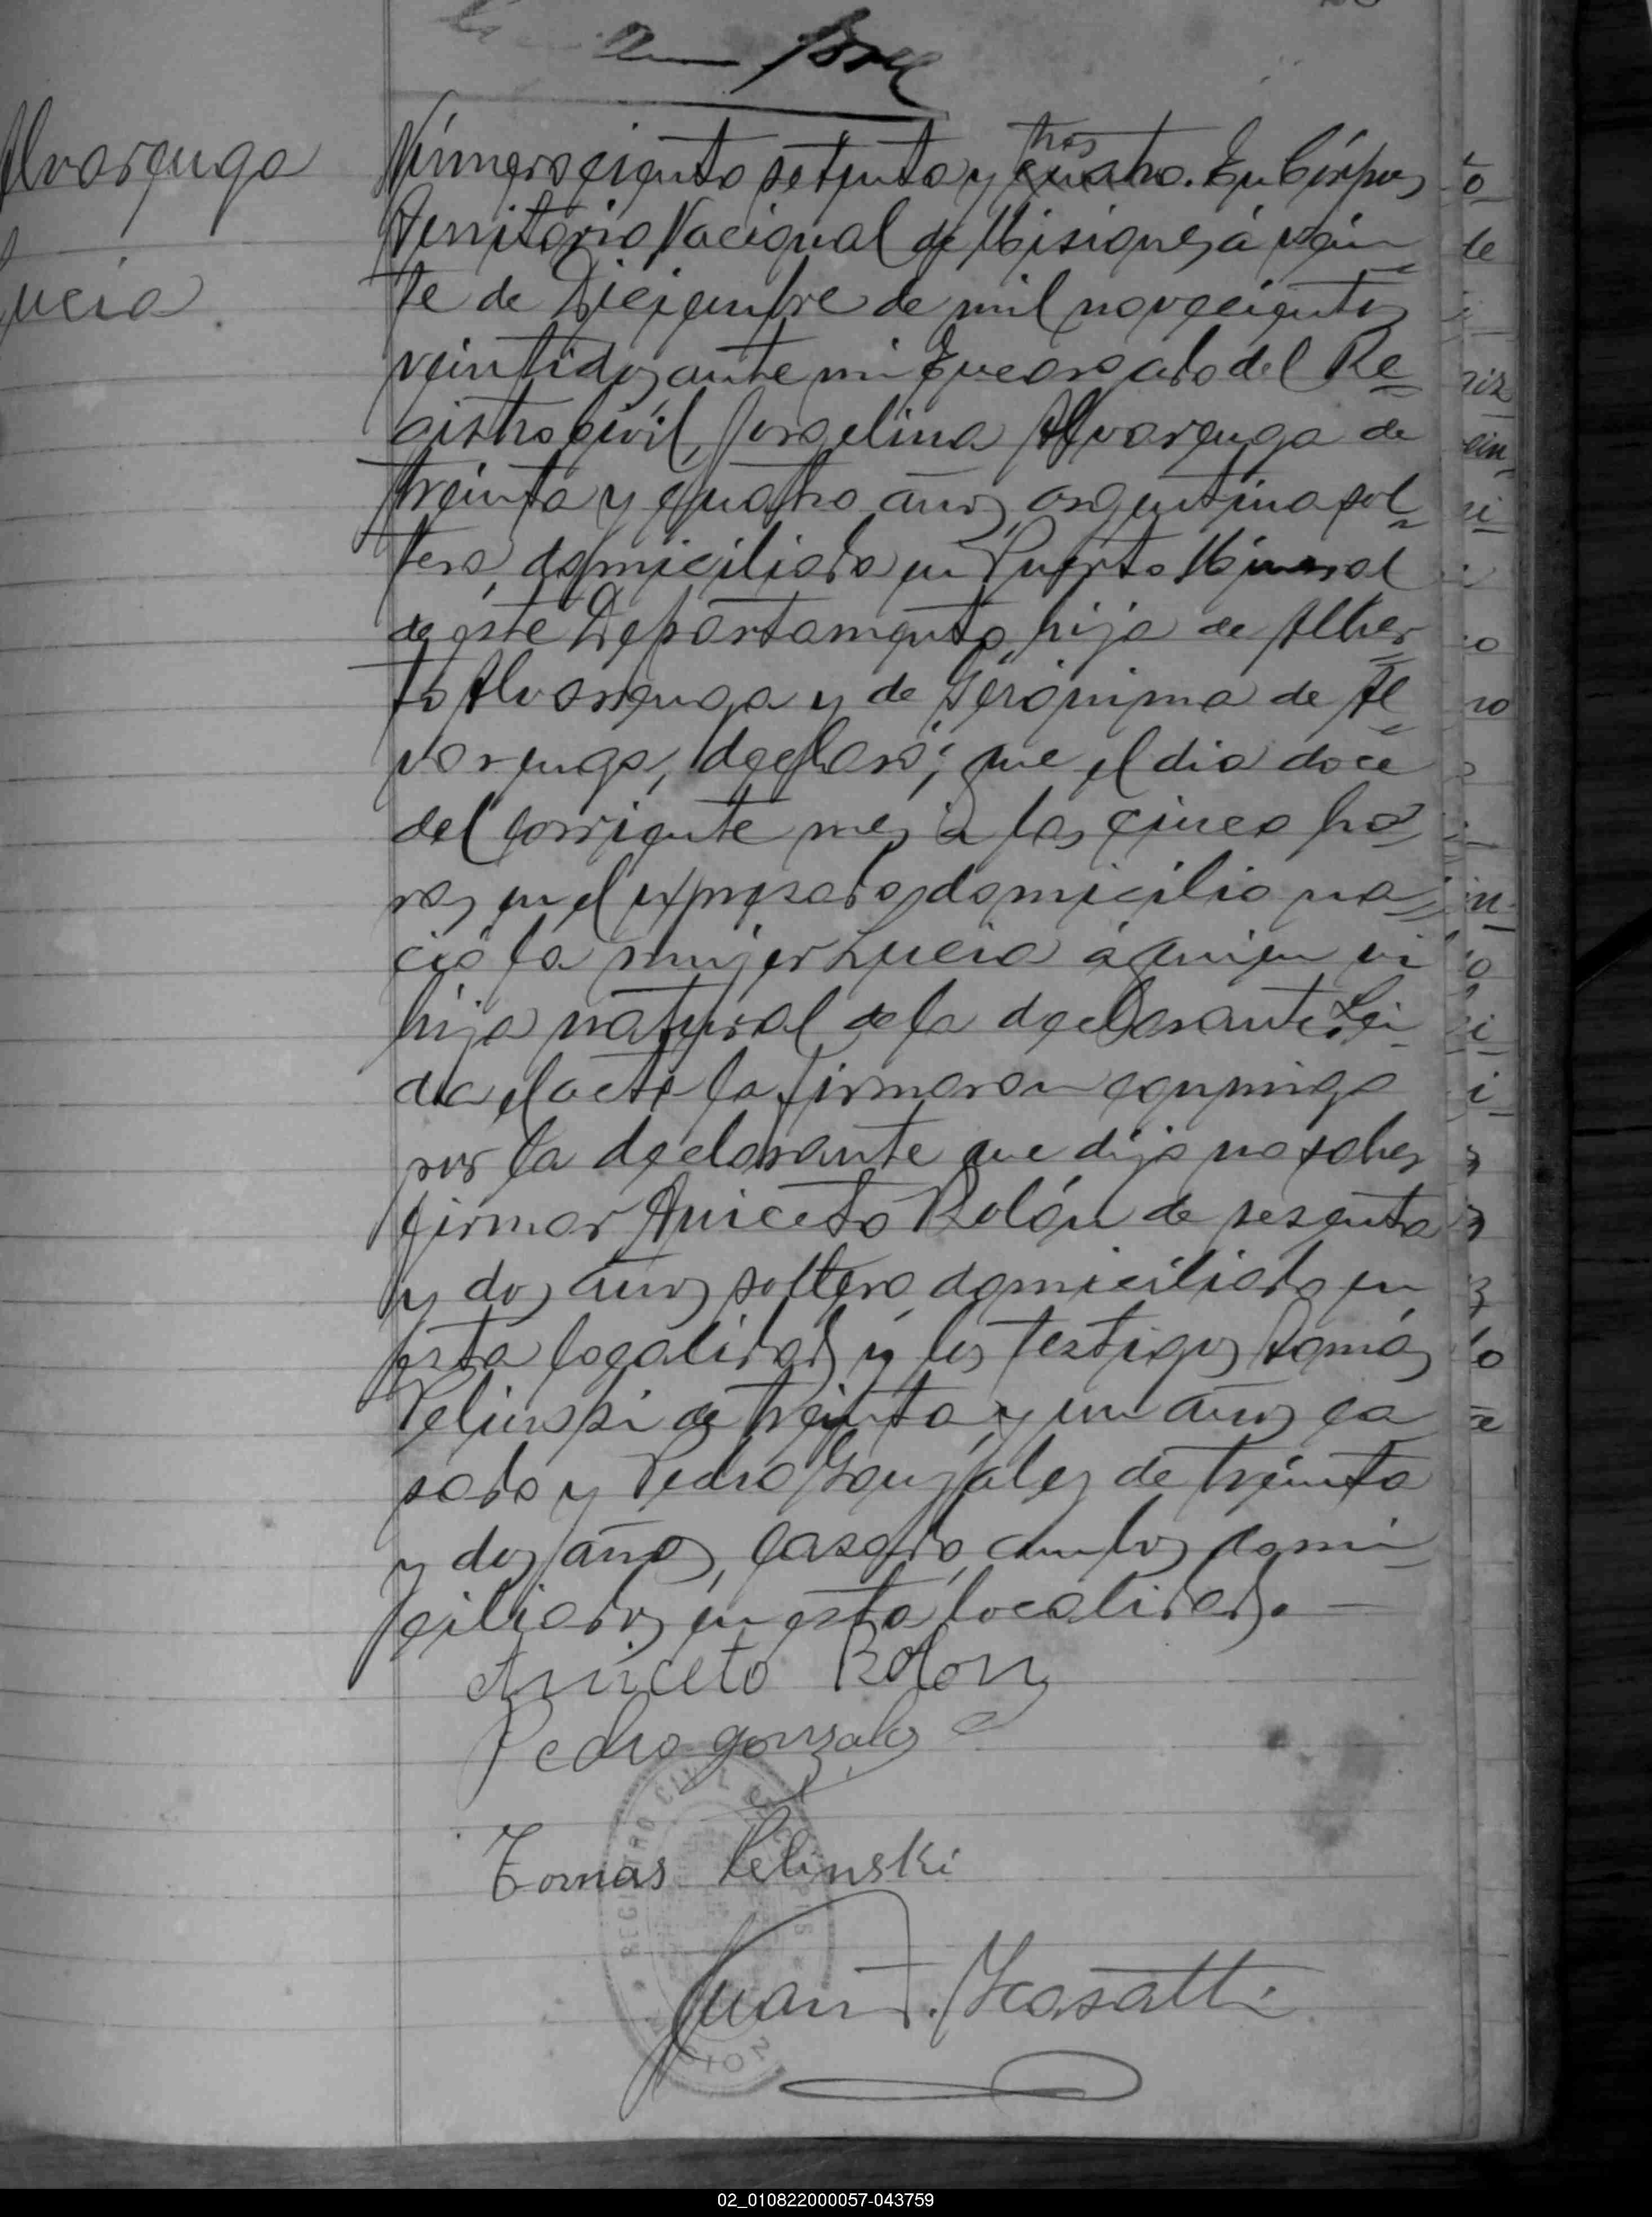 Alvarenga
Lucia
Número ciento setenta y tres cuatro. En Córpus
Territorio Nacional de Misiones, á vein
te de Diciembre de mil novecientos
veintidos, ante mi Encargado del Re
gistro civil, Jorgelina Alvarenga de
treinta y cuatro años, argentina, sol
tera, domiciliada en Puerto Mineral
de éste Departamento, hija de Alber
to Alvarenga y de Gerónima de Al
varenga, declaró; que el dia doce
del corriente mes á las cinco ho
ras, en el expresado domicilio na
ció la mujer Lucia á quien vi
hija natural de la declarante. Lei
da el acta la firmaron conmigo
por la declarante que dijo no saber
firmar Aniceto Rolón de sesenta
y dos años, soltero domiciliado en
esta localidad, y los testigos Tomás
Pelinski de treinta y un años, ca
sado y Pedro González de treinta
y dos años, casado, ambos domi
ciliados en esta localidad. —
Aniceto Rolon
Pedro gonzalez
Tomas Pelinski
REGISTRO CIVIL
Juan F.
02_010822000057-043759